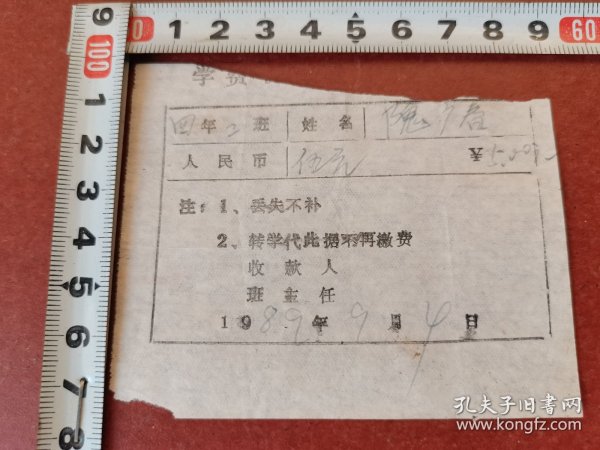 学费
四年2班 姓名
人民币 伍元 ¥ 5.00
注：1、丢失不补
2、转学代此据不再缴费
收款人
班主任
1989年9月4日
孔夫子旧书网
www.kongfz.com
9 100 1 2 3 4 5 6 7 8
1 2 3 4 5 6 7 8 9 60